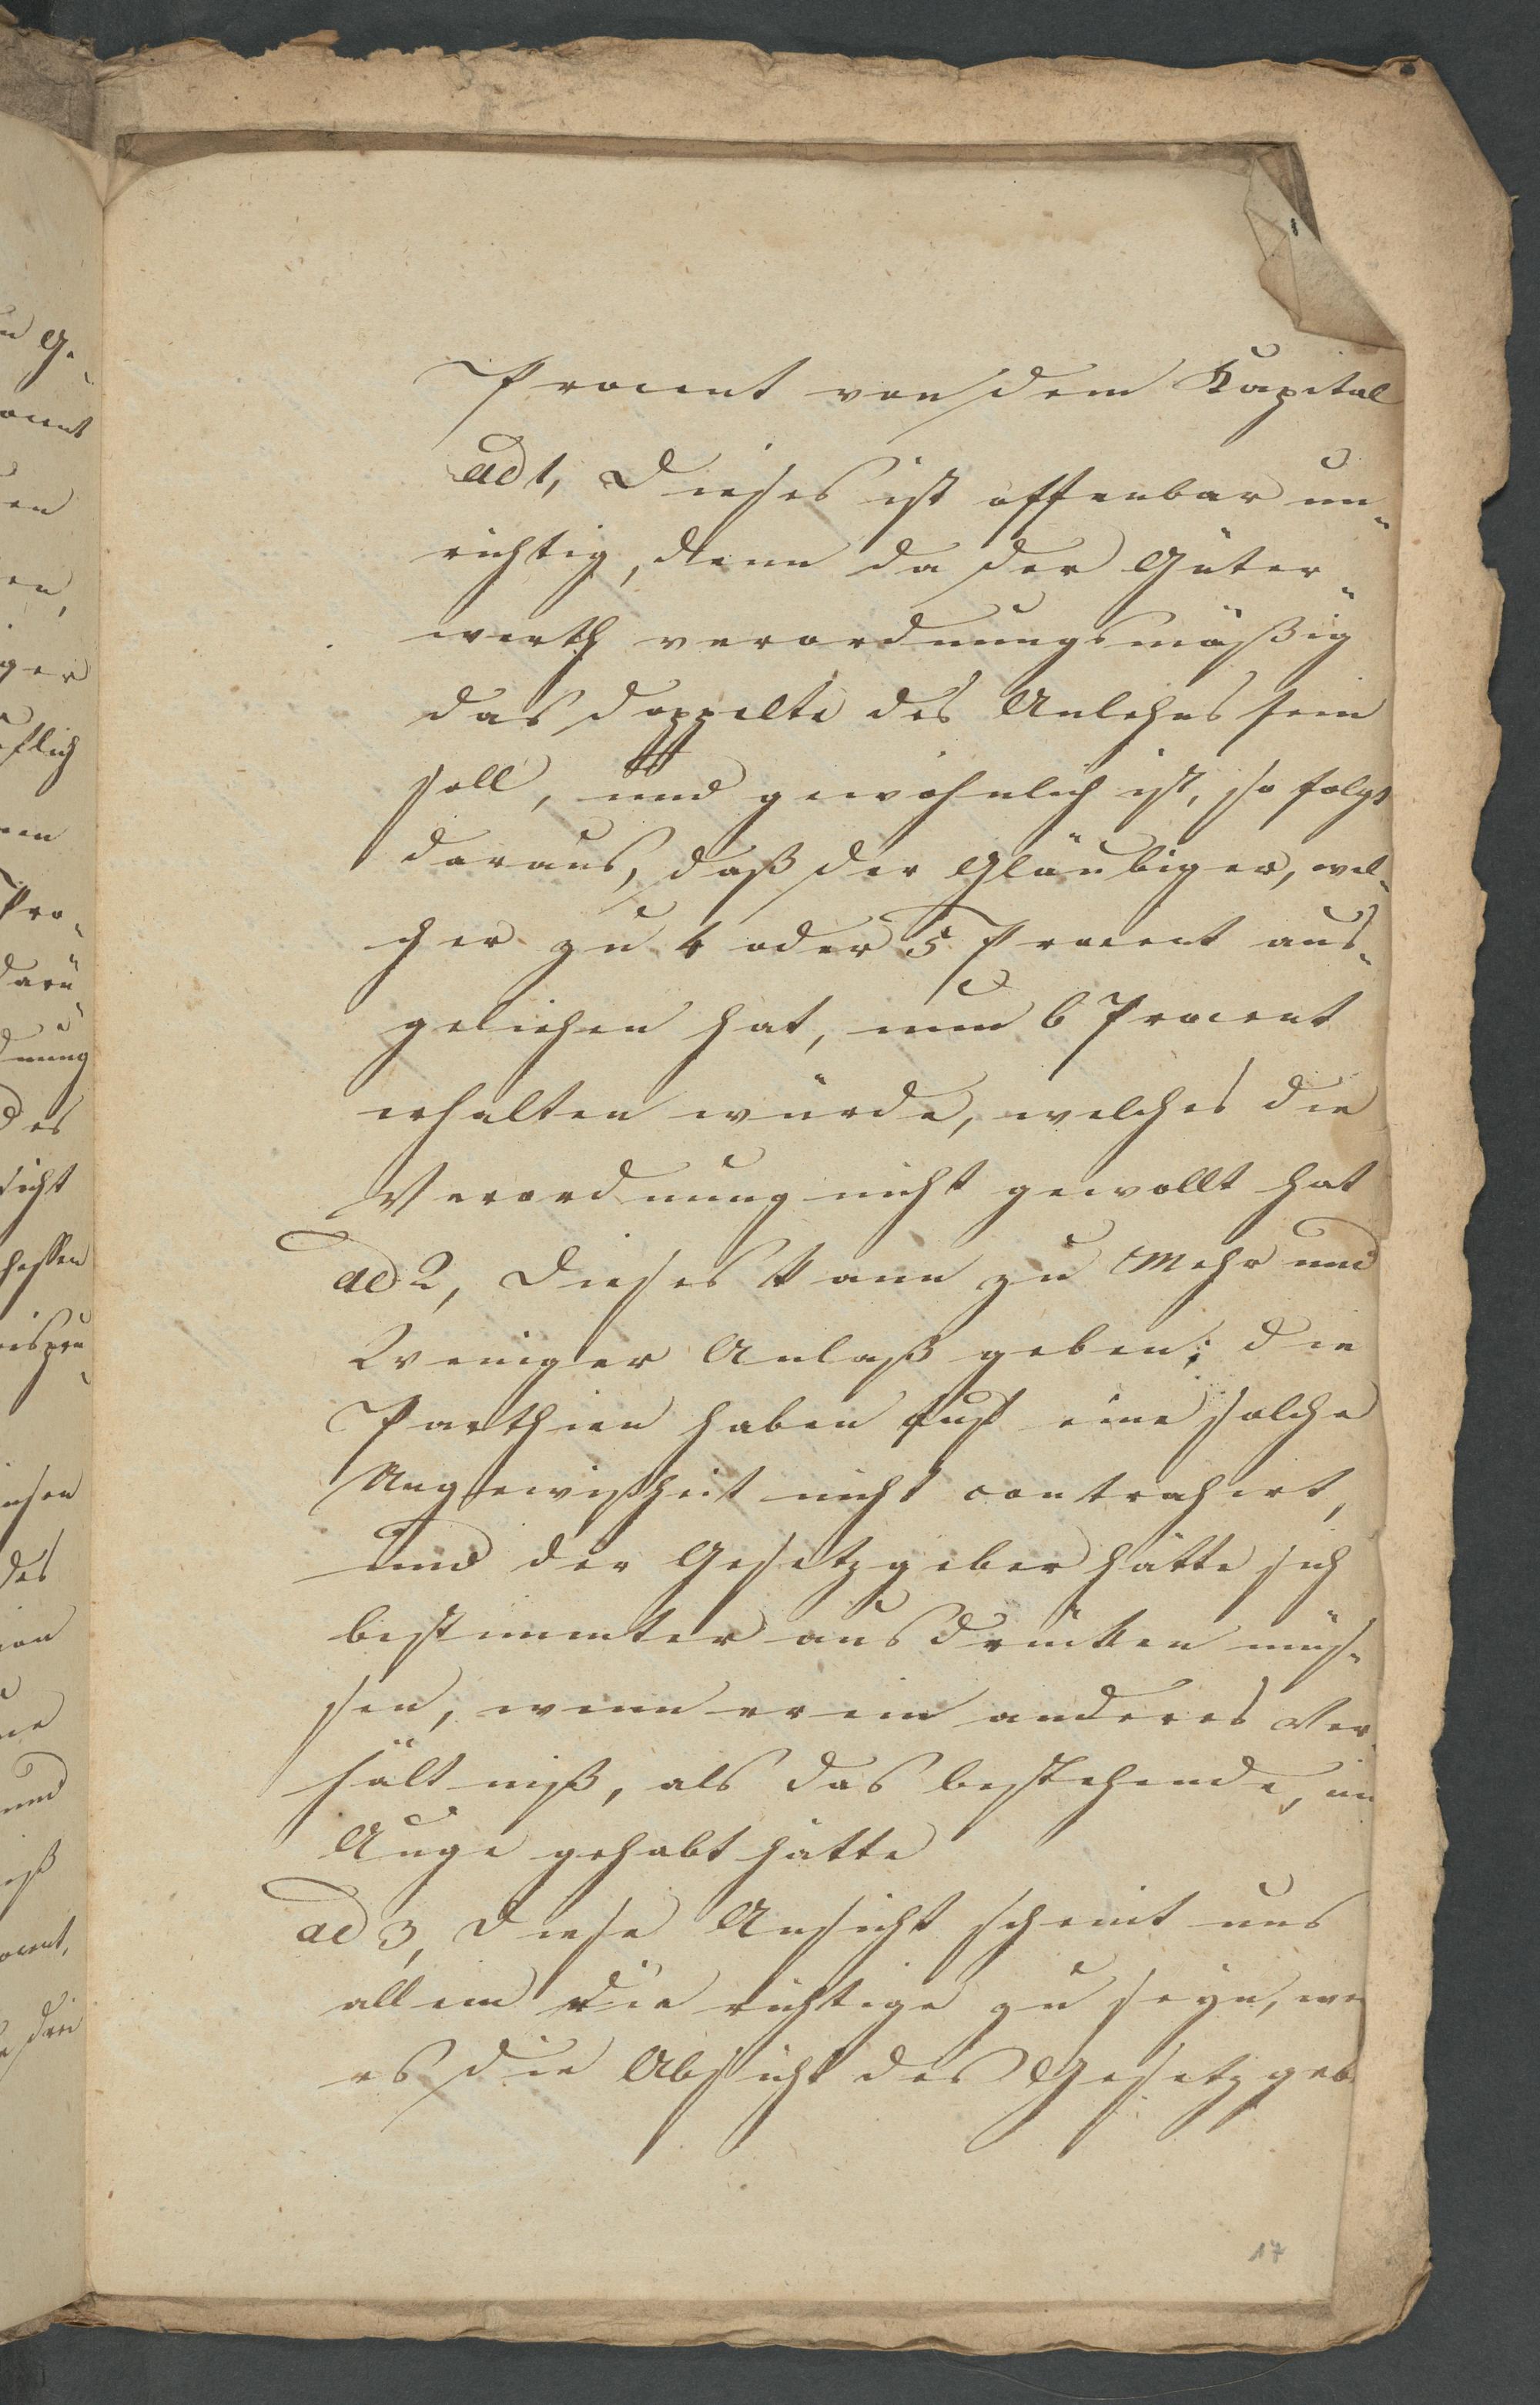 Procent von dem Kapital
ad 1, Dieses ist offenbar un-
richtig, denn da der Güter-
werth verordnungsmäßig
das doppelte des Anlehns sein
soll, und gewöhnlich ist, so folgt
daraus, daß der Gläubiger, wel-
cher zu 4 oder 5 Procent aus-
geliehen hat, nun 6 Procent
erhalten würde, welches die
Verordnung nicht gewollt hat
ad 2, Dieses kann zu Mehr und
Weniger Anlaß geben; die
Parthien haben auf eine solche
Ungewißheit nicht contrahirt,
und der Gesetzgeber hätte sich
bestimmter ausdrücken müs-
sen, wenn er ein anderes Ver-
hältniß, als das bestehende, im
Auge gehabt hätte
ad 3, Diese Ansicht scheint uns
allein die richtige zu seyn, we
es die Absicht des Gesetzgeb
17